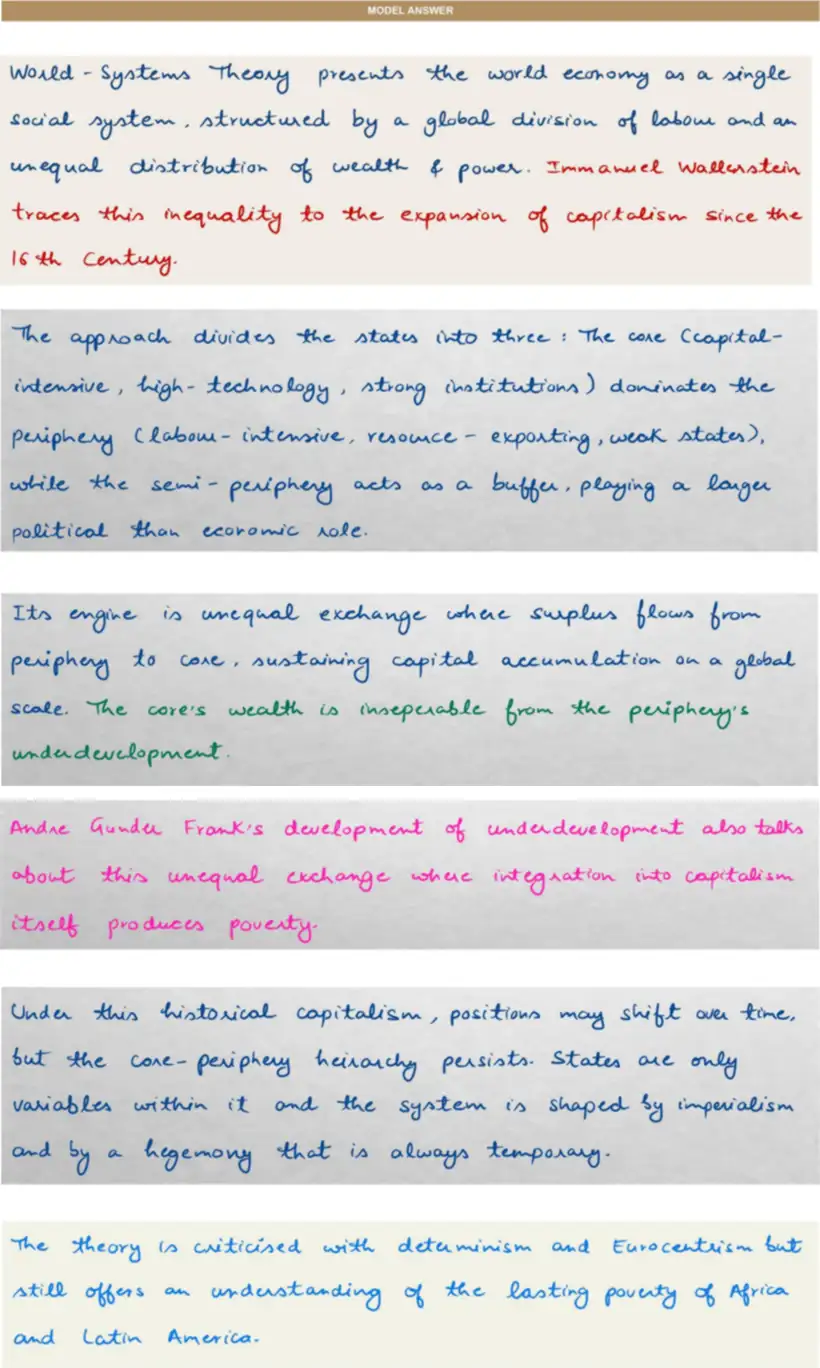 MODEL ANSWER
World - Systems Theory presents the world economy as a single
social system, structured by a global division of labour and an
unequal distribution of wealth & power. Immanuel Wallerstein
traces this inequality to the expansion of capitalism since the
16th Century.
The approach divides the states into three : The core (capital-
intensive, high-technology, strong institutions) dominates the
periphery (labour-intensive, resource-exporting, weak states),
while the semi-periphery acts as a buffer, playing a larger
political than economic role.
Its engine is unequal exchange where surplus flows from
periphery to core, sustaining capital accumulation on a global
scale. The core's wealth is inseperable from the periphery's
underdevelopment.
Andre Gunder Frank's development of underdevelopment also talks
about this unequal exchange where integration into capitalism
itself produces poverty.
Under this historical capitalism, positions may shift over time,
but the core-periphery heirarchy persists. States are only
variables within it and the system is shaped by imperialism
and by a hegemony that is always temporary.
The theory is criticised with determinism and Eurocentrism but
still offers an understanding of the lasting poverty of Africa
and Latin America.